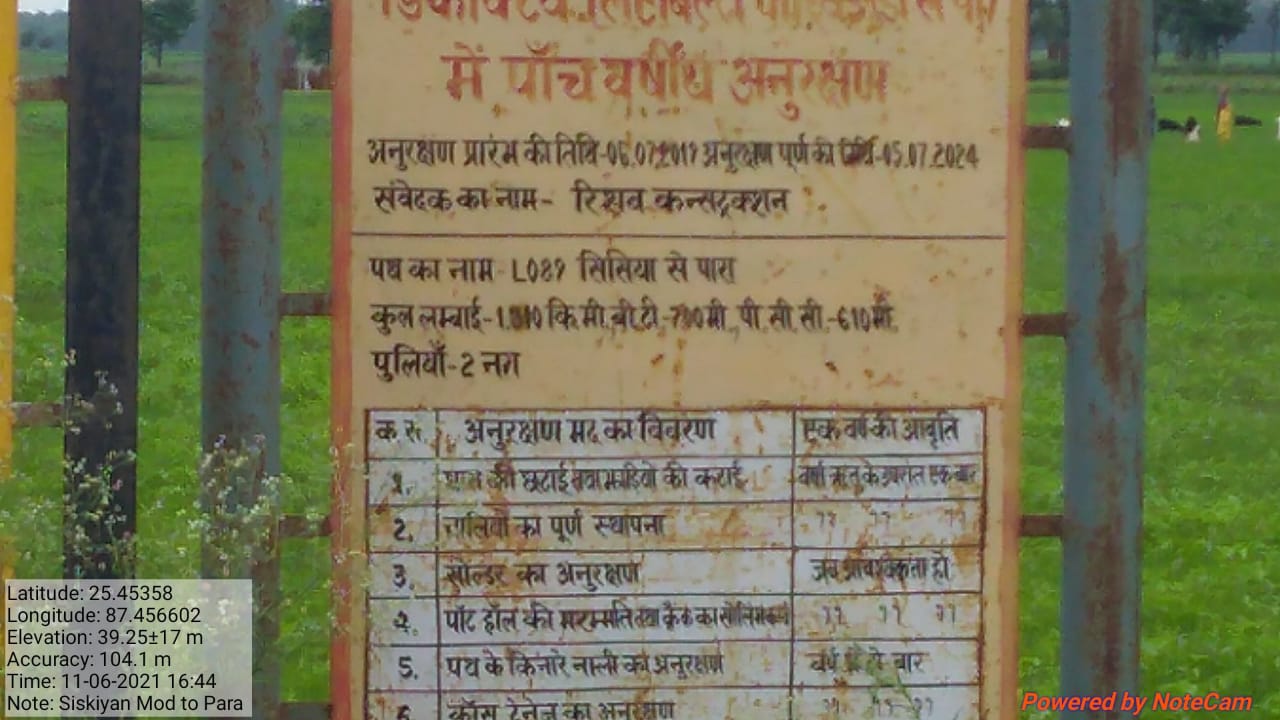 में पाँच वर्षीय अनुरक्षण
अनुरक्षण प्रारंभ की तिथि-06.07.2019 अनुरक्षण पूर्ण की तिथि-05.07.2024
संवेदक का नाम- रिशव कन्सट्रक्शन
पथ का नाम-L089 सिसिया से पारा
कुल लम्बाई- कि.मी. बी.टी.- मी. पी.सी.सी.-610मी.
पुलियाँ-2 नग
अनुरक्षण मद का विवरण एक वर्ष की आवृति
1. की छटाई तथा झाडियो की कटाई वर्षा ऋतु के उपरांत एक बार
2. नालियों का पूर्ण स्थापना ,, ,, ,,
3. सोल्डर का अनुरक्षण जब आवश्यकता हो
4. पॉट हॉल की मरम्मति तथा क्रैक का ,, ,, ,,
5. पथ के किनारे नाली का अनुरक्षण वर्ष में दो बार
6. क्रॉस ड्रेनेज का अनुरक्षण ,, ,, ,,
Latitude: 25.45358
Longitude: 87.456602
Elevation: 39.25±17 m
Accuracy: 104.1 m
Time: 11-06-2021 16:44
Note: Siskiyan Mod to Para
Powered by NoteCam